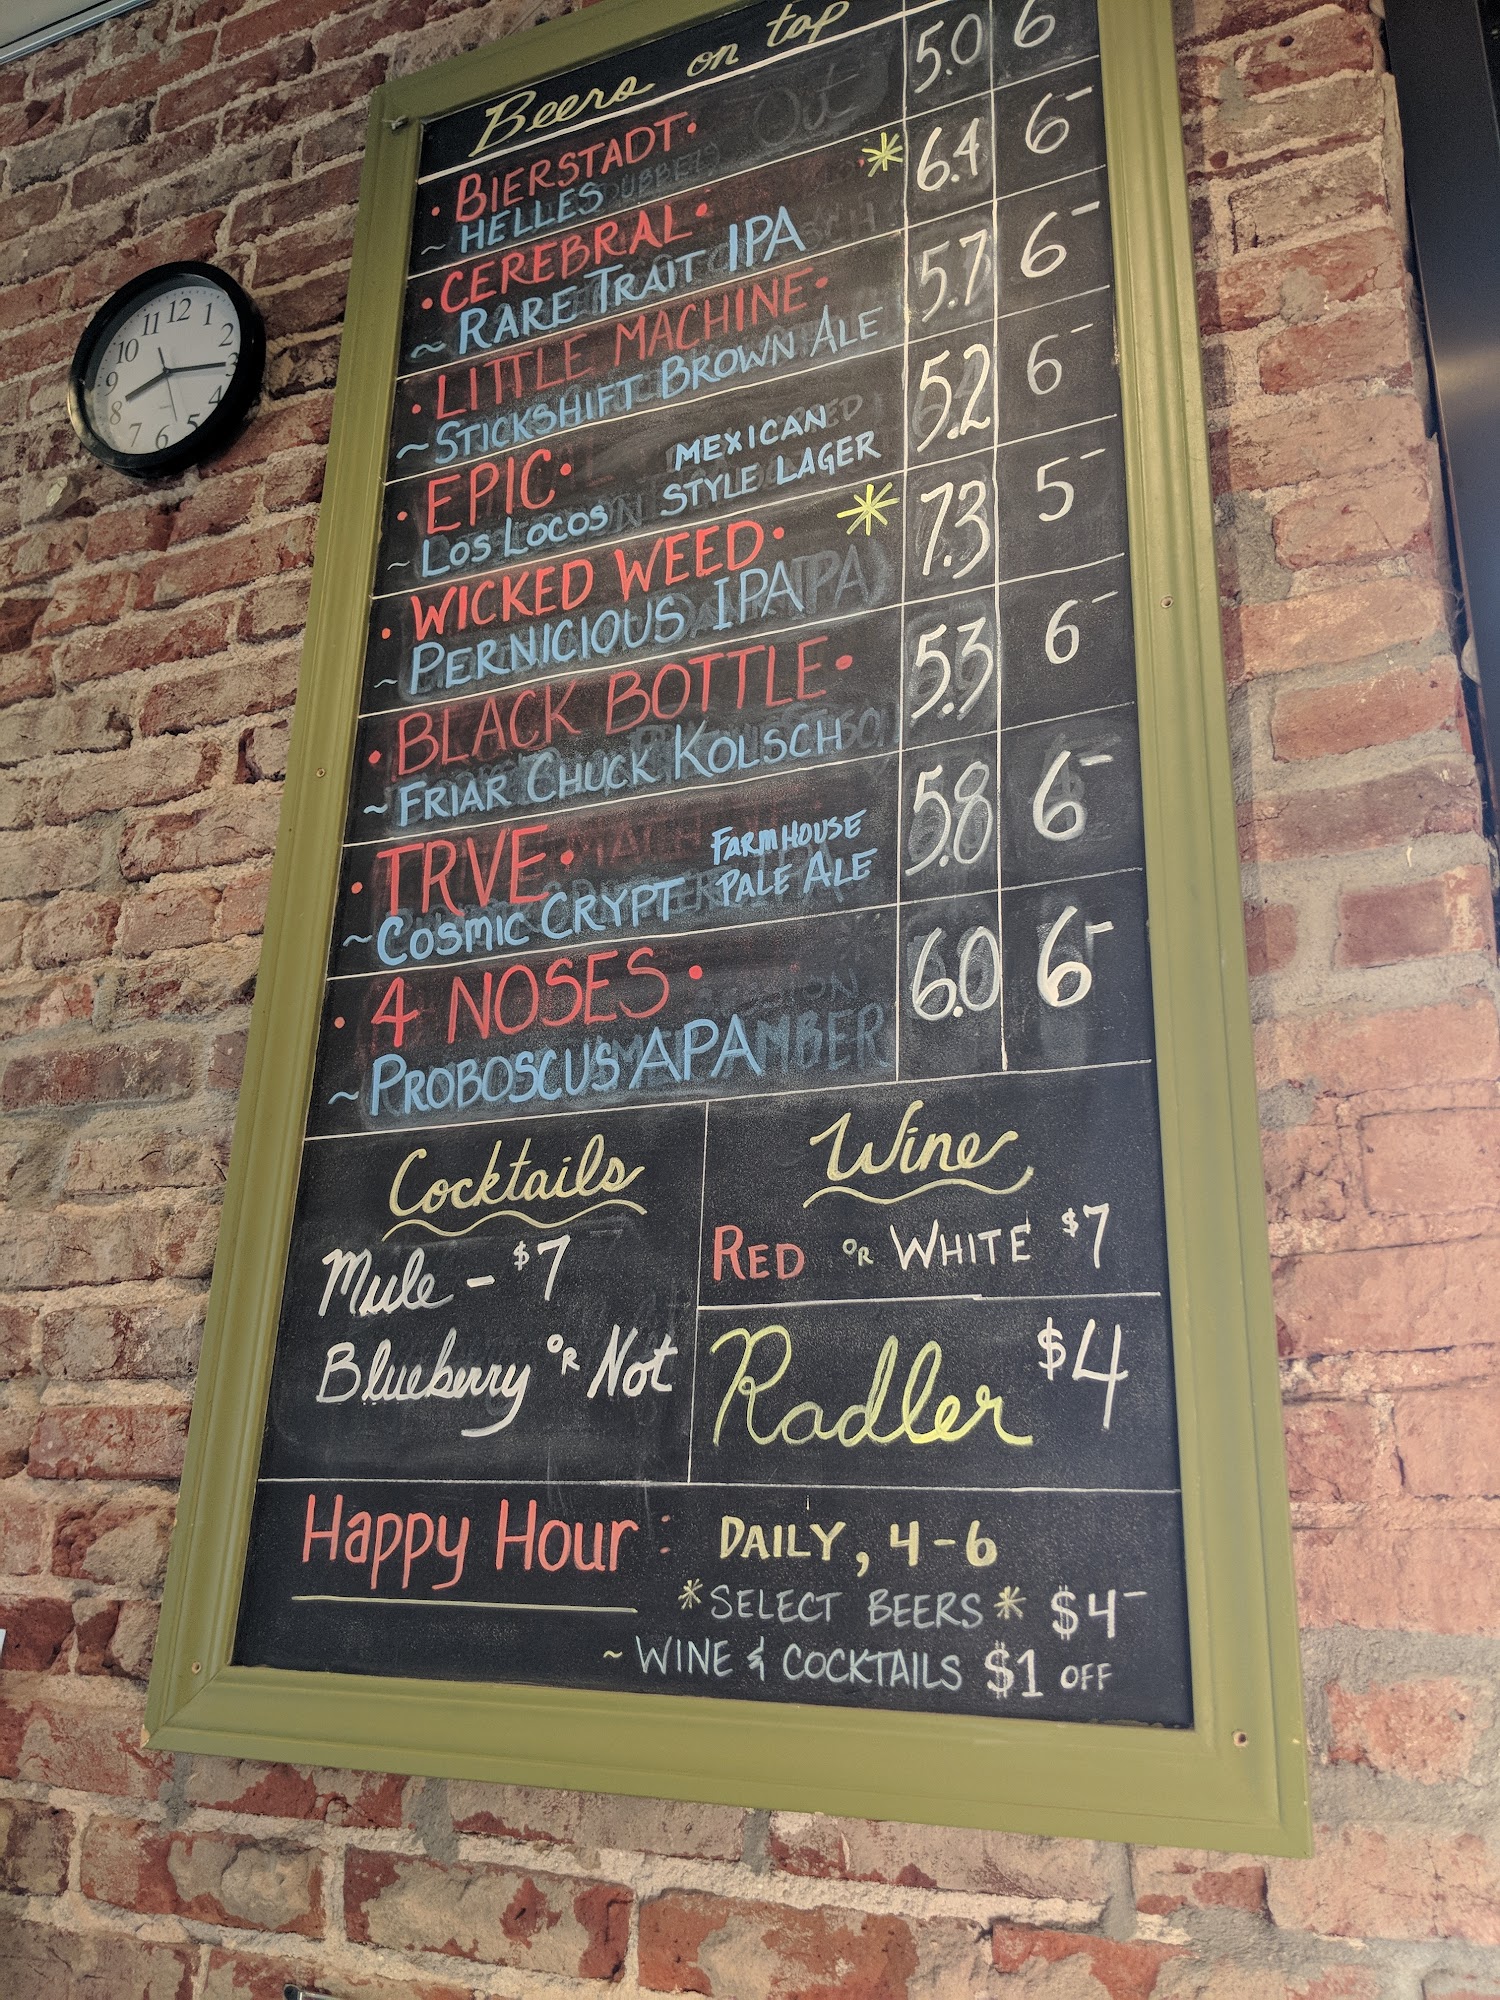 Beers on tap
• BIERSTADT • 5.0 6
~ HELLES
• CEREBRAL • * 6.4 6-
~ RARE TRAIT IPA
• LITTLE MACHINE • 5.7 6-
~ STICKSHIFT BROWN ALE
• EPIC • 5.2 6-
~ LOS LOCOS MEXICAN
STYLE LAGER
• WICKED WEED • * 7.3 5-
~ PERNICIOUS IPA
• BLACK BOTTLE • 5.3 6-
~ FRIAR CHUCK KOLSCH
• TRVE • 5.8 6-
~ COSMIC CRYPT FARMHOUSE
PALE ALE
• 4 NOSES • 6.0 6-
~ PROBOSCUS APA
Cocktails
Mule - $7
Blueberry OR Not
Wine
RED OR WHITE $7
Radler $4
Happy Hour : DAILY, 4-6
*SELECT BEERS* $4-
~ WINE & COCKTAILS $1 OFF
12
1
2
3
4
5
6
7
8
9
10
11